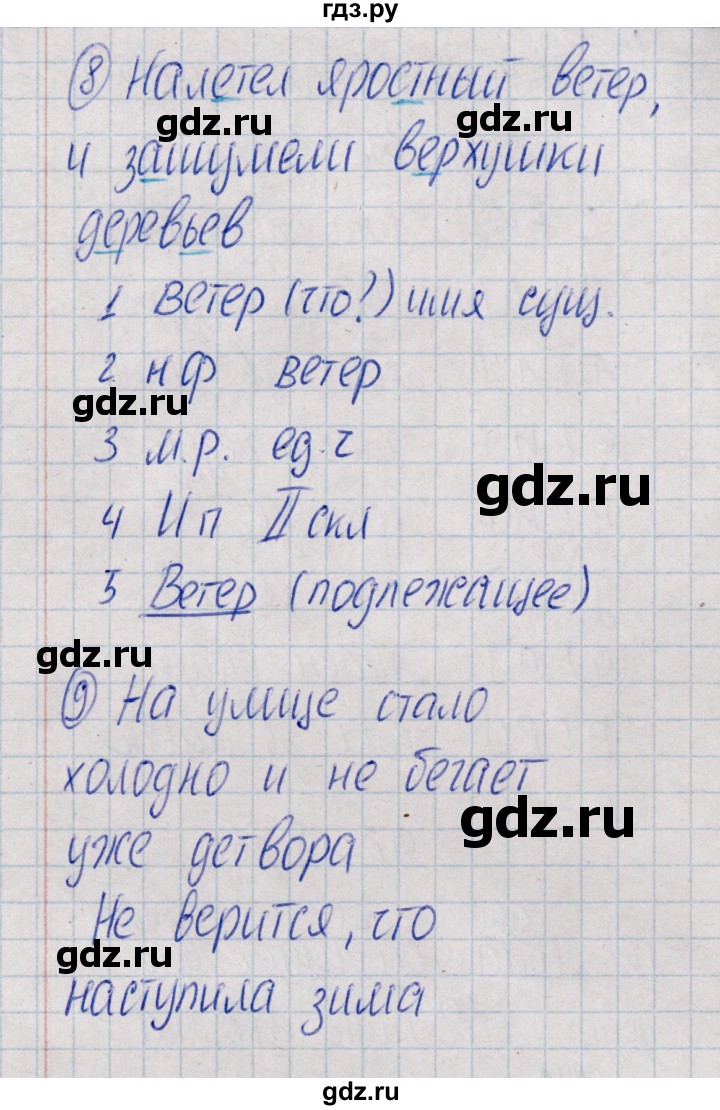 гдз.ру
⑧ Налетел яростный ветер,
gdz.ru
gdz.ru
и зашумели верхушки
деревьев
1 ветер (что?) имя сущ.
2. н ф ветер
gdz.ru
3 м.р. ед. ч
gdz.ru
4 И п II скл
5 Ветер (подлежащее)
gdz.ru
⑨ На улице стало
холодно и не бегает
gdz.ru
уже детвора
Не верится, что
gdz.ru
наступила зима
gdz.ru